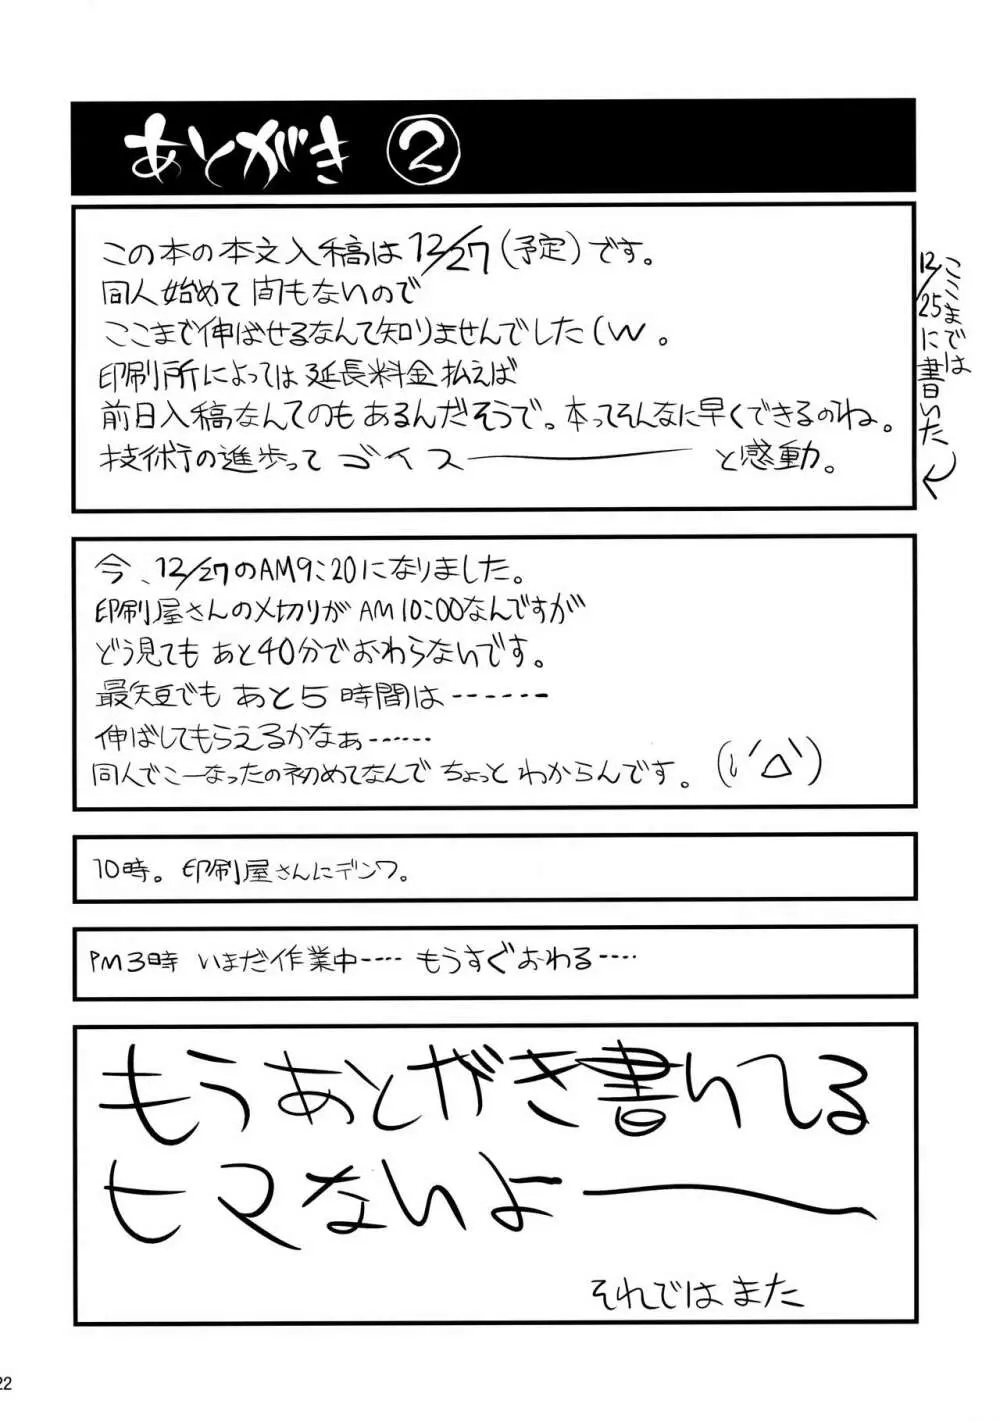 あとがき ②
この本の本文入稿は12/27(予定)です。
同人始めて間もないので
ここまで伸ばせるなんて知りませんでした(w。
印刷所によっては延長料金払えば
前日入稿なんてのもあるんだそうで。本ってそんなに早くできるのね。
技術の進歩って ゴイスーーーーー と感動。
ここまでは
12/25に書いた
今、12/27のAM9:20になりました。
印刷屋さんの〆切りがAM10:00なんですが
どう見てもあと40分でおわらないです。
最短でもあと5時間は------
伸ばしてもらえるかなぁ------
同人でこーなったの初めてなんでちょっとわからんです。(ι´Δ`)
10時。印刷屋さんにデンワ。
PM3時 いまだ作業中---- もうすぐおわる----
もうあとがき書いてる
ヒマないよーーー
それではまた
22